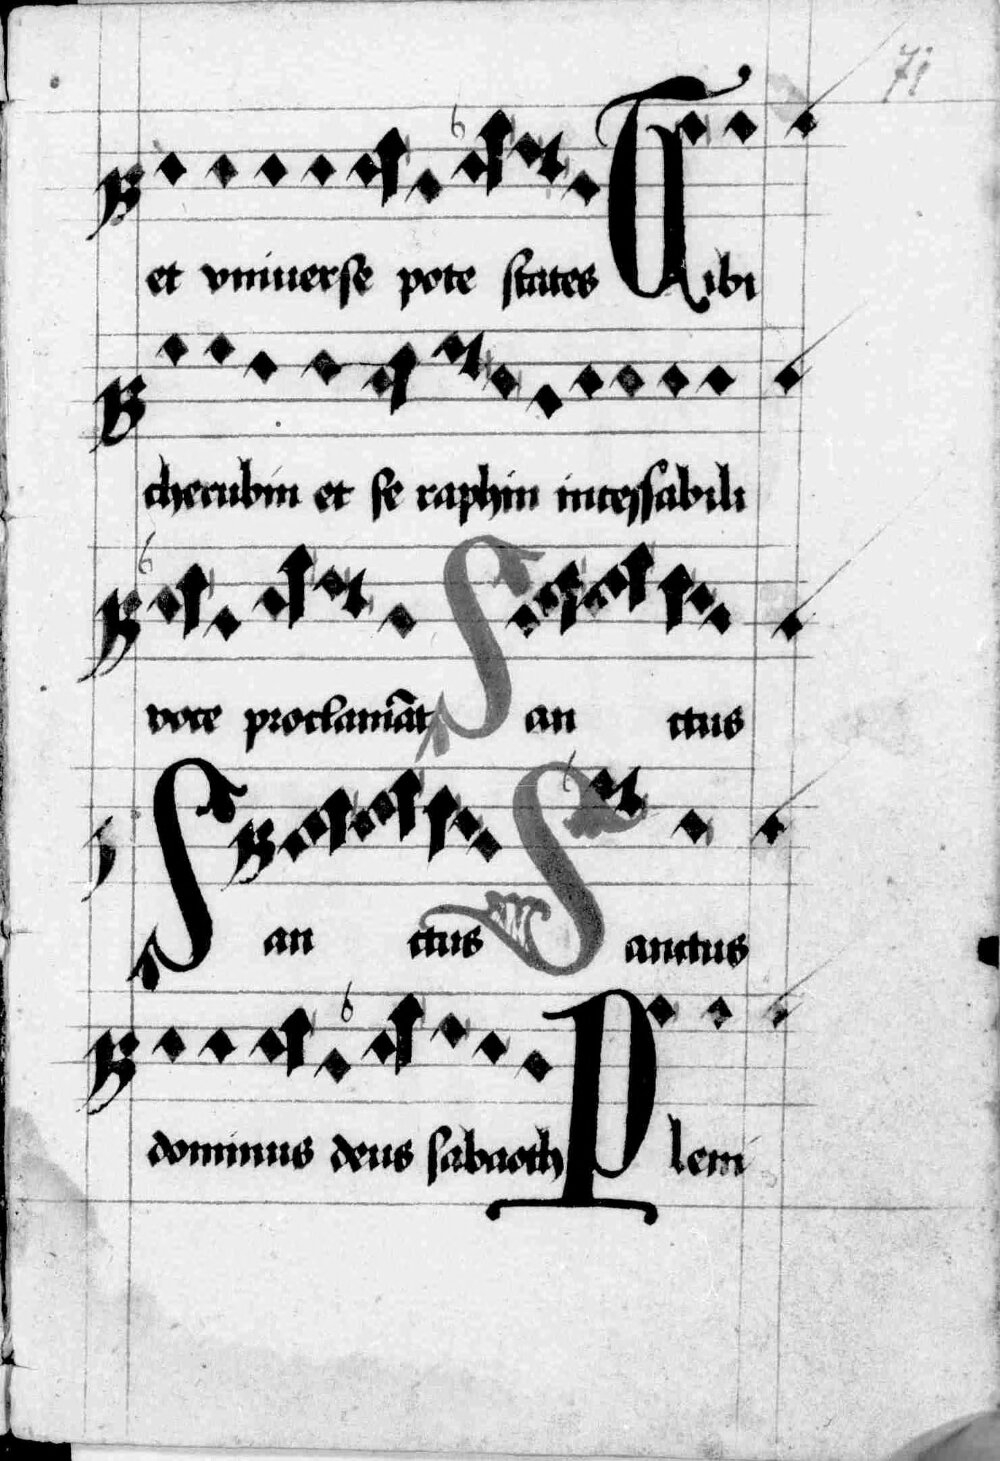 71
et vniuerse pote states Tibi
cherubin et se raphin incessabili
voce proclamāt San ctus
San ctus Sanctus
dominus deus sabaoth Pleni